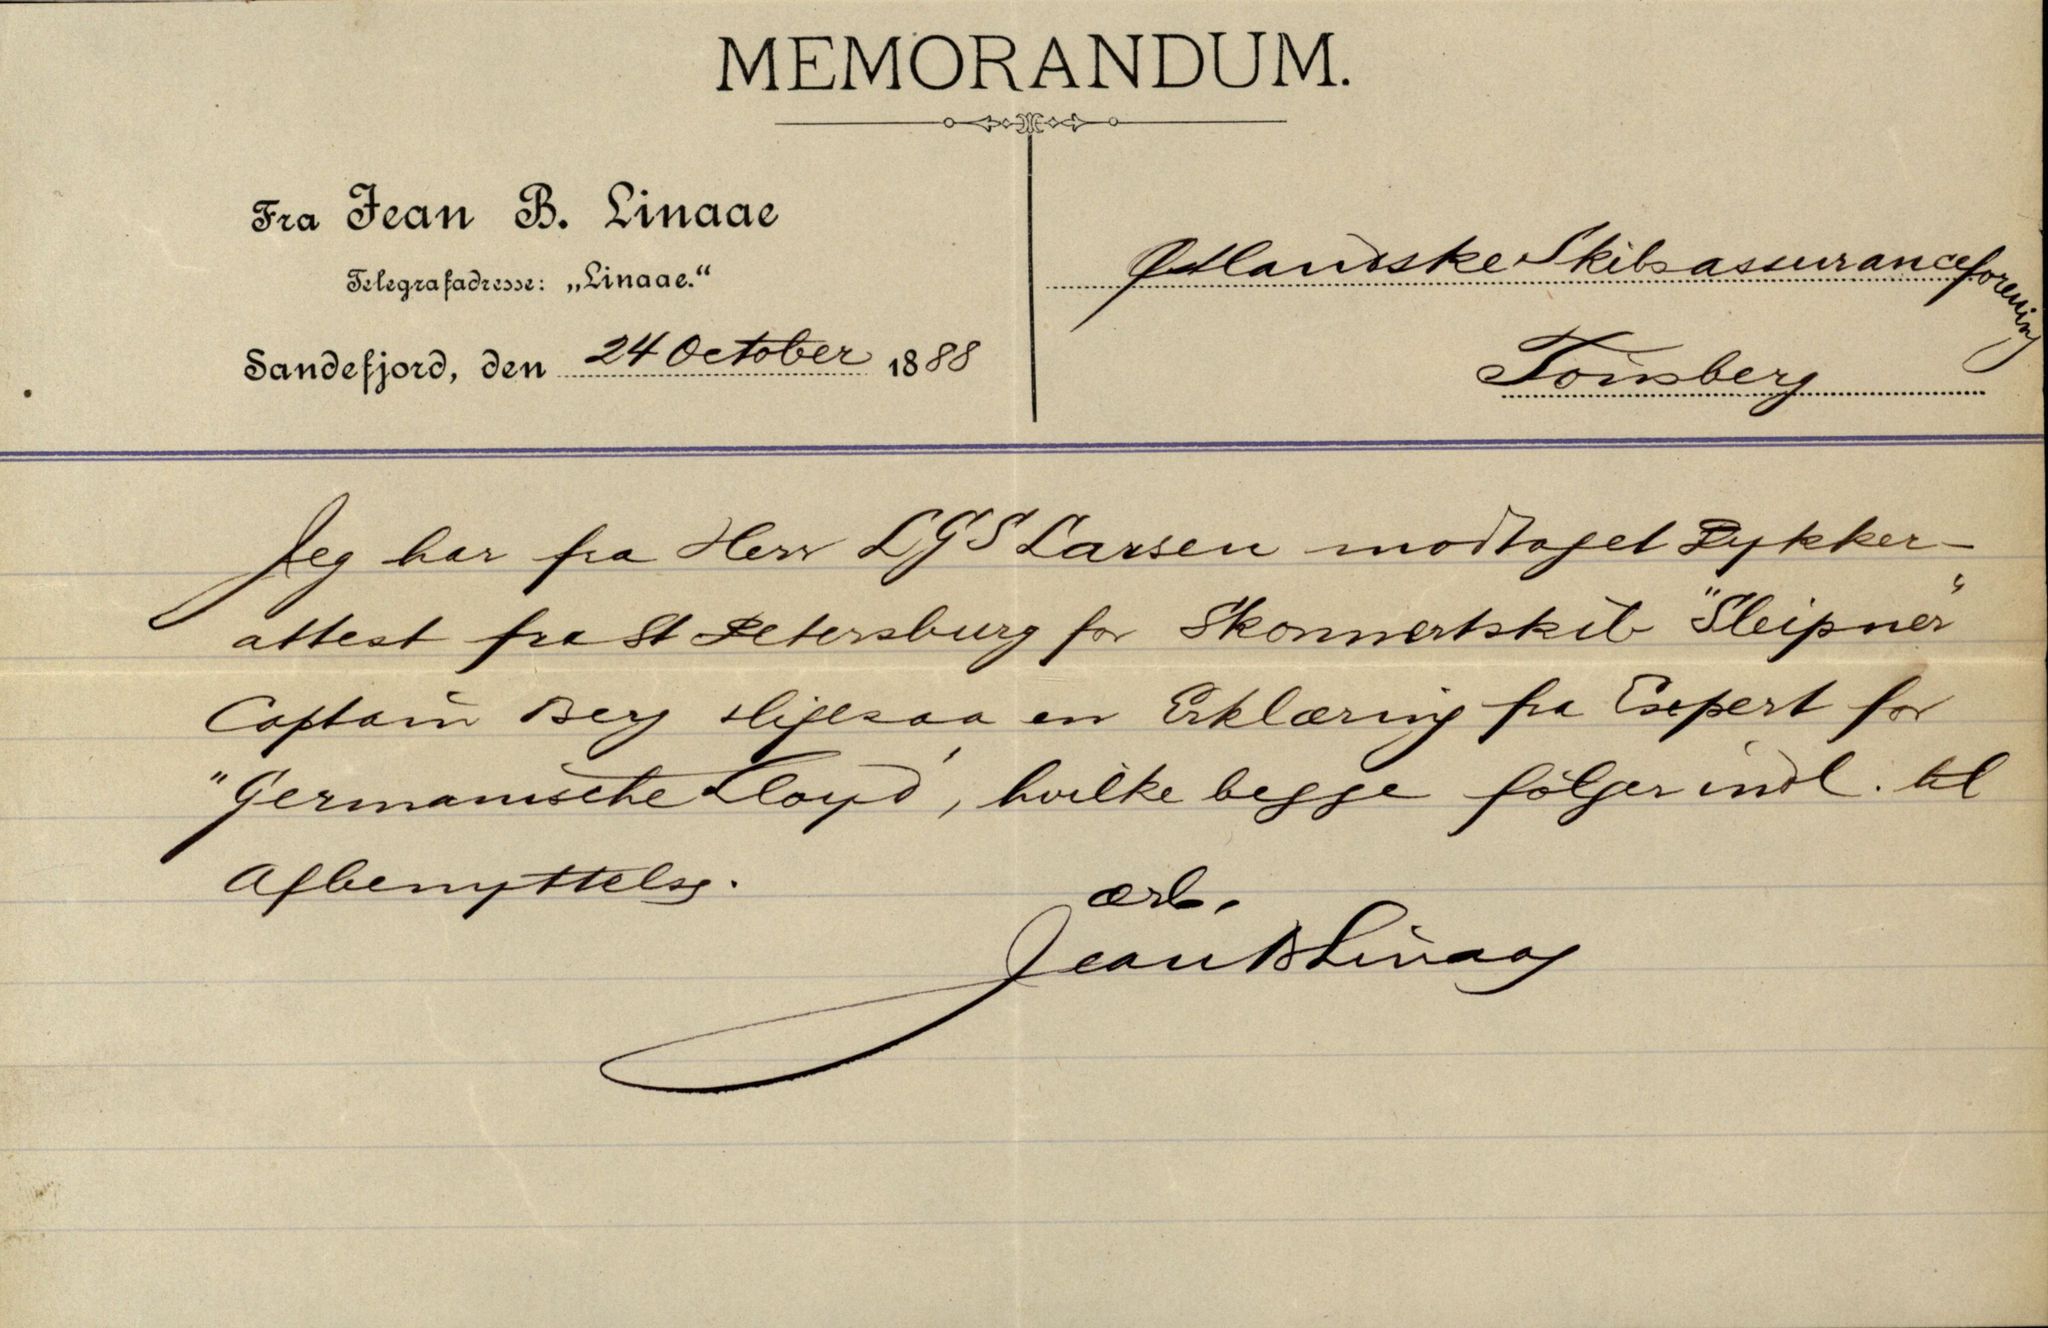 MEMORANDUM.
Fra Jean B. Linaae
Telegrafadresse: „Linaae.“
Sandefjord, den 24 October 1888
Østlandske Skibsassuranceforening
Tönsberg
Jeg har fra Herr LGS Larsen modtaget Dykker-
attest fra St Petersburg for Skonnertskib "Sleipner"
Captain Berg sligesaa en Erklæring fra Expert for
"Germanische Lloyd", hvilke begge følger indl. til
Afbenyttelse.
ærb.
Jean B Linaae